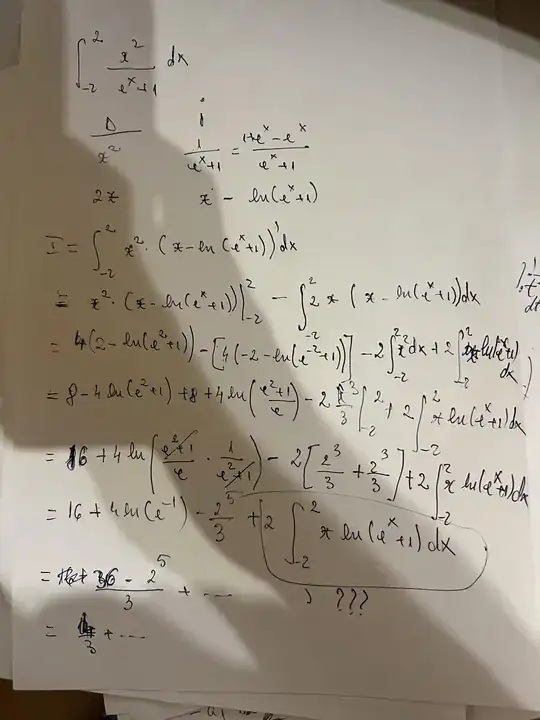 ∫_{-2}^{2} x²/(e^x+1) dx
D i
x² 1/(e^x+1) = (1+e^x-e^x)/(e^x+1)
2x x - ln(e^x+1)
I = ∫_{-2}^{2} x² · (x - ln(e^x+1))' dx
= x² · (x - ln(e^x+1))|_{-2}^{2} - ∫_{-2}^{2} 2x (x - ln(e^x+1)) dx
= 4(2 - ln(e²+1)) - [4(-2 - ln(e^{-2}+1))] - 2∫_{-2}^{2} x² dx + 2∫_{-2}^{2} x ln(e^x+1) dx
= 8 - 4 ln(e²+1) + 8 + 4 ln((e²+1)/e) - 2 x³/3 |_{-2}^{2} + 2∫_{-2}^{2} x ln(e^x+1) dx
= 16 + 4 ln((e²+1)/e · 1/(e²+1)) - 2[2³/3 + 2³/3] + 2∫_{-2}^{2} x ln(e^x+1) dx
= 16 + 4 ln(e^{-1}) - 2⁵/3 + 2∫_{-2}^{2} x ln(e^x+1) dx
= (36 - 2⁵)/3 + ...
???
= /3 + ...